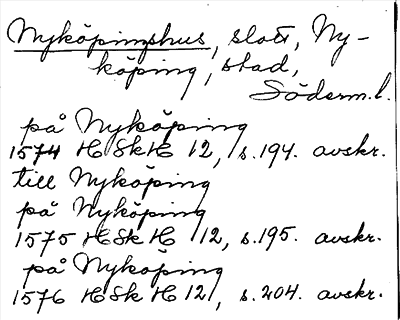 Nyköpingshus, slott, Ny-
köping, stad,
Söderm.l.
på Nyköping
1574 HSkH 12, s.194. avskr.
till Nyköping
på Nyköping
1575 HSkH 12, s.195. avskr.
på Nyköping
1576 HSkH 12, s.204. avskr.